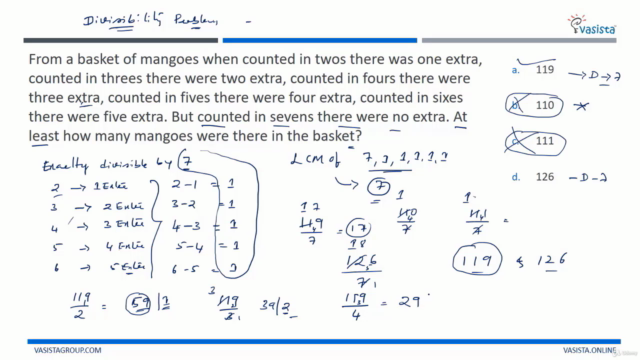 Divisibility Problem
Vasista
From a basket of mangoes when counted in twos there was one extra,
counted in threes there were two extra, counted in fours there were
three extra, counted in fives there were four extra, counted in sixes
there were five extra. But counted in sevens there were no extra. At
least how many mangoes were there in the basket?
a. 119 → D → 7
b. 110
c. 111
d. 126 - D - 7
Exactly divisible by 7
2 → 1 Extra 2-1 = 1
3 → 2 Extra 3-2 = 1
4 → 3 Extra 4-3 = 1
5 → 4 Extra 5-4 = 1
6 → 5 Extra 6-5 = 1
LCM of 7, 1, 1, 1, 1, 1
→ 7
119/7 = 17
126/7
18
110/7
111/7 =
119 & 126
119/2 = 59 | 1
119/3 39/2
159/4 = 29
VASISTAGROUP.COM
VASISTA.ONLINE